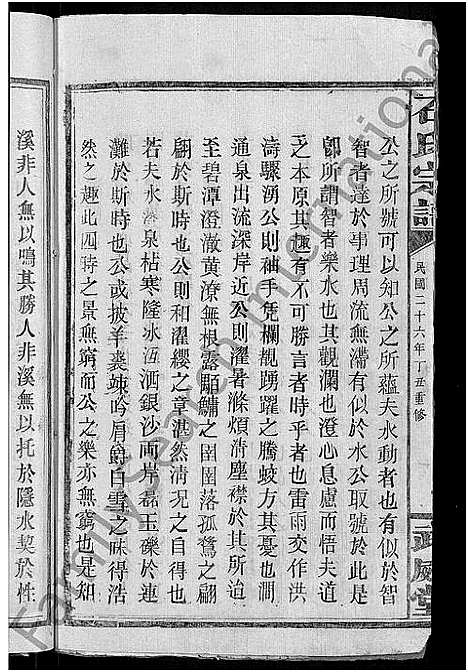 石氏宗譜
民國二十六年丁丑重修
武威堂
公之所號可以知公之所蘊夫水動者也有似於智
智者達於事理周流無滯有似於水公取號於此
卽所謂智者樂水也其觀瀾也澄心息慮而悟夫道
之本原其趣有不可勝言者時乎雷雨交作洪
濤驟湧公則袖手凭欄覩踴躍之騰蛟方其憂也澗
通泉出流深岸近公則濯暑滌煩清塵襟於其所治
至碧潭澄澈黄潦無根露顒鱅之圉圉落孤鶩之翩
翩於斯時也公則和濯纓之章湛然清况之自得也
若夫水落泉枯寒隆氷沍洒銀沙兩岸磊玉礫於連
灘於斯時也公或披羊裘竦吟肩爵白雪之味得浩
然之趣此四時之景無窮而公之樂亦無窮也是知
溪非人無以鳴其勝人非溪無以托於隱水契於性
FamilySearch International